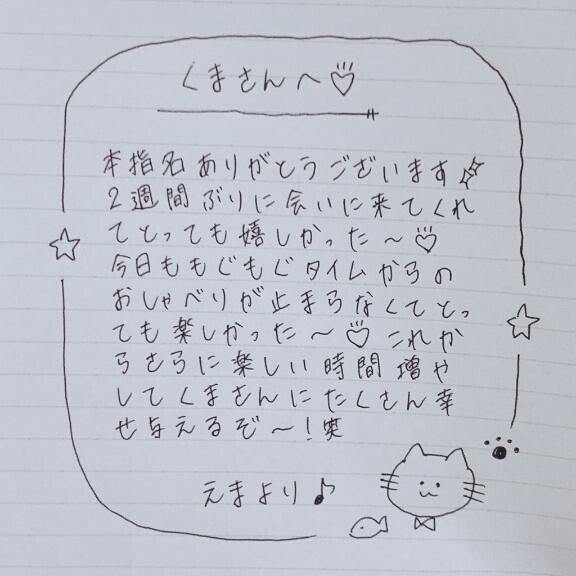 くまさんへ♡
本指名ありがとうございます
2週間ぶりに会いに来てくれ
てとっても嬉しかった〜♡
今日ももぐもぐタイムからの
おしゃべりが止まらなくてとっ
ても楽しかった〜♡ これか
らさらに楽しい時間増や
してくまさんにたくさん幸
せ与えるぞ〜！笑
えまより♪